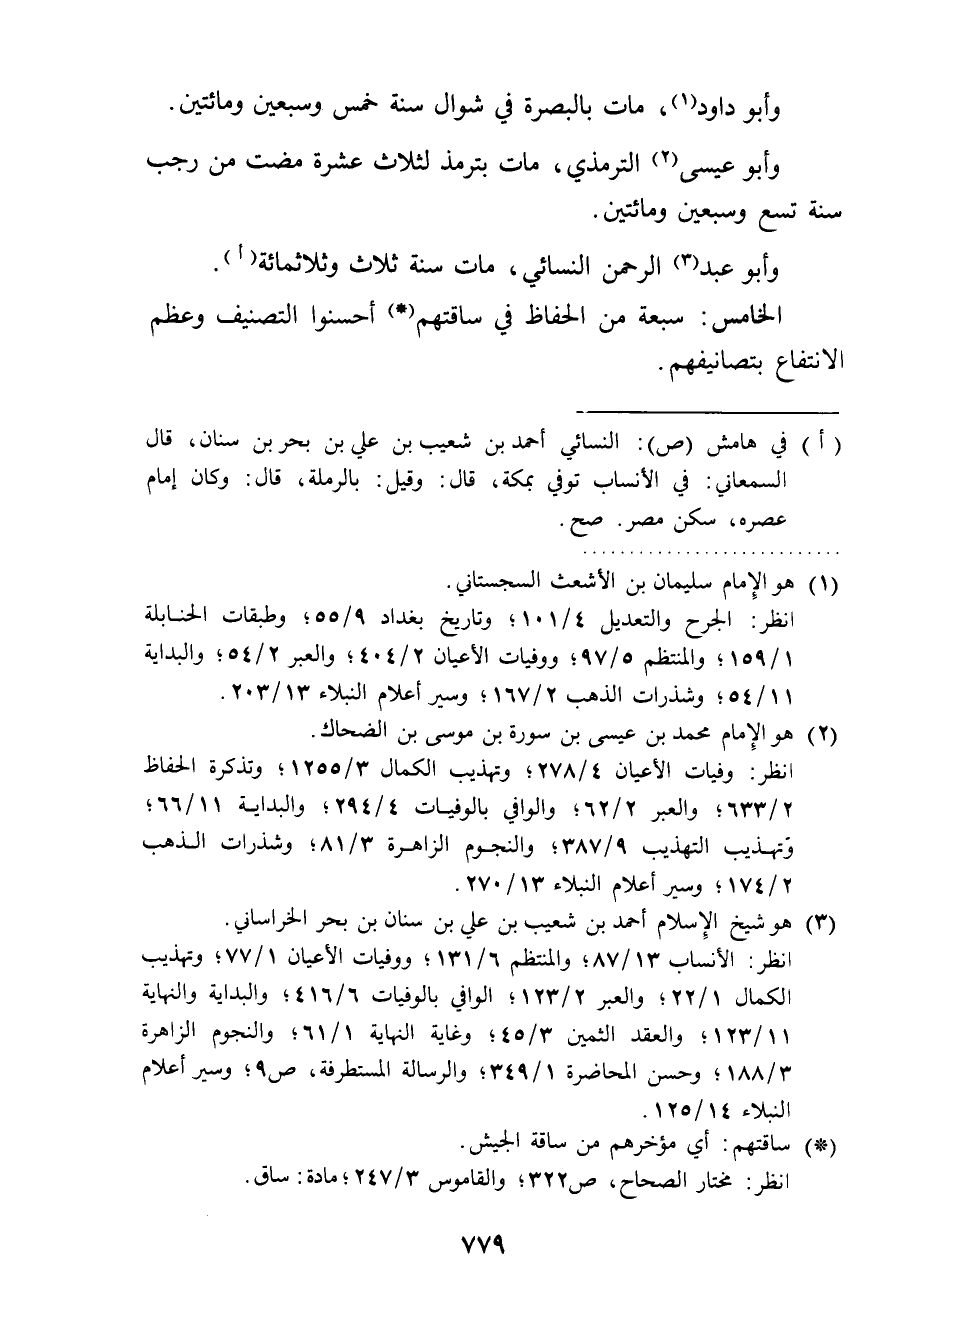 وأبو داود(١)، مات بالبصرة في شوال سنة خمس وسبعين ومائتين.
وأبو عيسى(٢) الترمذي، مات بترمذ لثلاث عشرة مضت من رجب
سنة تسع وسبعين ومائتين.
وأبو عبد(٣) الرحمن النسائي، مات سنة ثلاث وثلاثمائة(أ).
الخامس: سبعة من الحفاظ في ساقتهم(*) أحسنوا التصنيف وعظم
الانتفاع بتصانيفهم.
(أ) في هامش (ص): النسائي أحمد بن شعيب بن علي بن بحر بن سنان، قال
السمعاني: في الأنساب توفي بمكة، قال: وقيل: بالرملة، قال: وكان إمام
عصره، سكن مصر. صح.
(١) هو الإمام سليمان بن الأشعث السجستاني.
انظر: الجرح والتعديل ١٠١/٤؛ وتاريخ بغداد ٥٥/٩؛ وطبقات الحنابلة
١٥٩/١؛ والمنتظم ٩٧/٥؛ ووفيات الأعيان ٤٠٤/٢؛ والعبر ٥٤/٢؛ والبداية
٥٤/١١؛ وشذرات الذهب ١٦٧/٢؛ وسير أعلام النبلاء ٢٠٣/١٣.
(٢) هو الإمام محمد بن عيسى بن سورة بن موسى بن الضحاك.
انظر: وفيات الأعيان ٢٧٨/٤؛ وتهذيب الكمال ١٢٥٥/٣؛ وتذكرة الحفاظ
٦٣٣/٢؛ والعبر ٦٢/٢؛ والوافي بالوفيات ٢٩٤/٤؛ والبداية ٦٦/١١؛
وتهذيب التهذيب ٣٨٧/٩؛ والنجوم الزاهرة ٨١/٣؛ وشذرات الذهب
١٧٤/٢؛ وسير أعلام النبلاء ٢٧٠/١٣.
(٣) هو شيخ الإسلام أحمد بن شعيب بن علي بن سنان بن بحر الخراساني.
انظر: الأنساب ٨٧/١٣؛ والمنتظم ١٣١/٦؛ ووفيات الأعيان ٧٧/١؛ وتهذيب
الكمال ٢٢/١؛ والعبر ١٢٣/٢؛ الوافي بالوفيات ٤١٦/٦؛ والبداية والنهاية
١٢٣/١١؛ والعقد الثمين ٤٥/٣؛ وغاية النهاية ٦١/١؛ والنجوم الزاهرة
١٨٨/٣؛ وحسن المحاضرة ٣٤٩/١؛ والرسالة المستطرفة، ص٩؛ وسير أعلام
النبلاء ١٢٥/١٤.
(*) ساقتهم: أي مؤخرهم من ساقة الجيش.
انظر: مختار الصحاح، ص٣٢٢؛ والقاموس ٢٤٧/٣؛ مادة: ساق.
٧٧٩